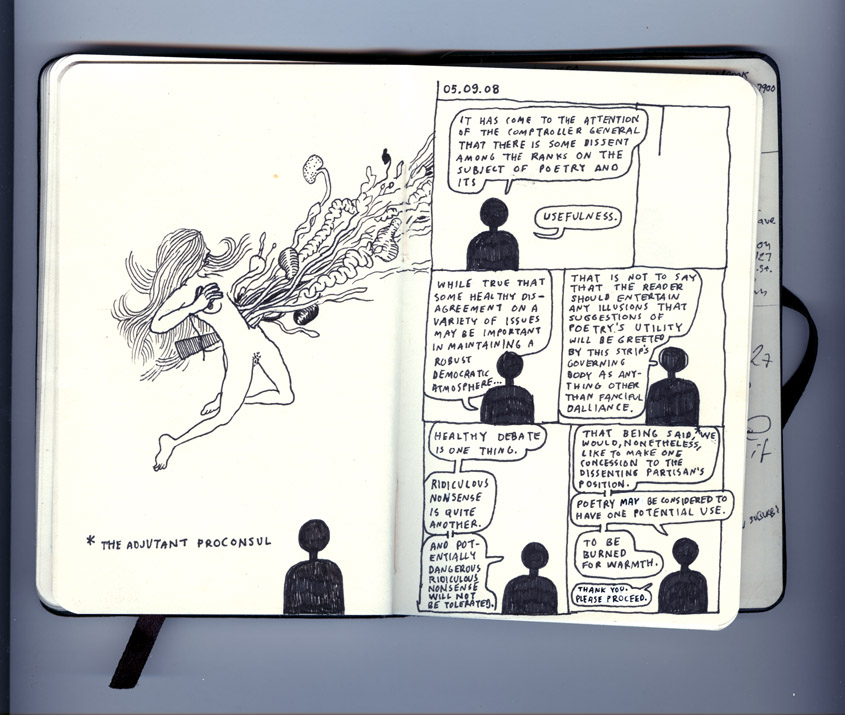 * THE ADJUTANT PROCONSUL
05.09.08
IT HAS COME TO THE ATTENTION
OF THE COMPTROLLER GENERAL
THAT THERE IS SOME DISSENT
AMONG THE RANKS ON THE
SUBJECT OF POETRY AND
ITS
USEFULNESS.
WHILE TRUE THAT
SOME HEALTHY DIS-
AGREEMENT ON A
VARIETY OF ISSUES
MAY BE IMPORTANT
IN MAINTAINING A
ROBUST
DEMOCRATIC
ATMOSPHERE...
THAT IS NOT TO SAY
THAT THE READER
SHOULD ENTERTAIN
ANY ILLUSIONS THAT
SUGGESTIONS OF
POETRY'S UTILITY
WILL BE GREETED
BY THIS STRIP'S
GOVERNING
BODY AS ANY-
THING OTHER
THAN FANCIFUL
DALLIANCE.
HEALTHY DEBATE
IS ONE THING.
RIDICULOUS
NONSENSE
IS QUITE
ANOTHER.
AND POT-
ENTIALLY
DANGEROUS
RIDICULOUS
NONSENSE
WILL NOT
BE TOLERATED.
THAT BEING SAID,*WE
WOULD, NONETHELESS,
LIKE TO MAKE ONE
CONCESSION TO THE
DISSENTING PARTISAN'S
POSITION.
POETRY MAY BE CONSIDERED TO
HAVE ONE POTENTIAL USE.
TO BE
BURNED
FOR WARMTH.
THANK YOU.
PLEASE PROCEED.
7900